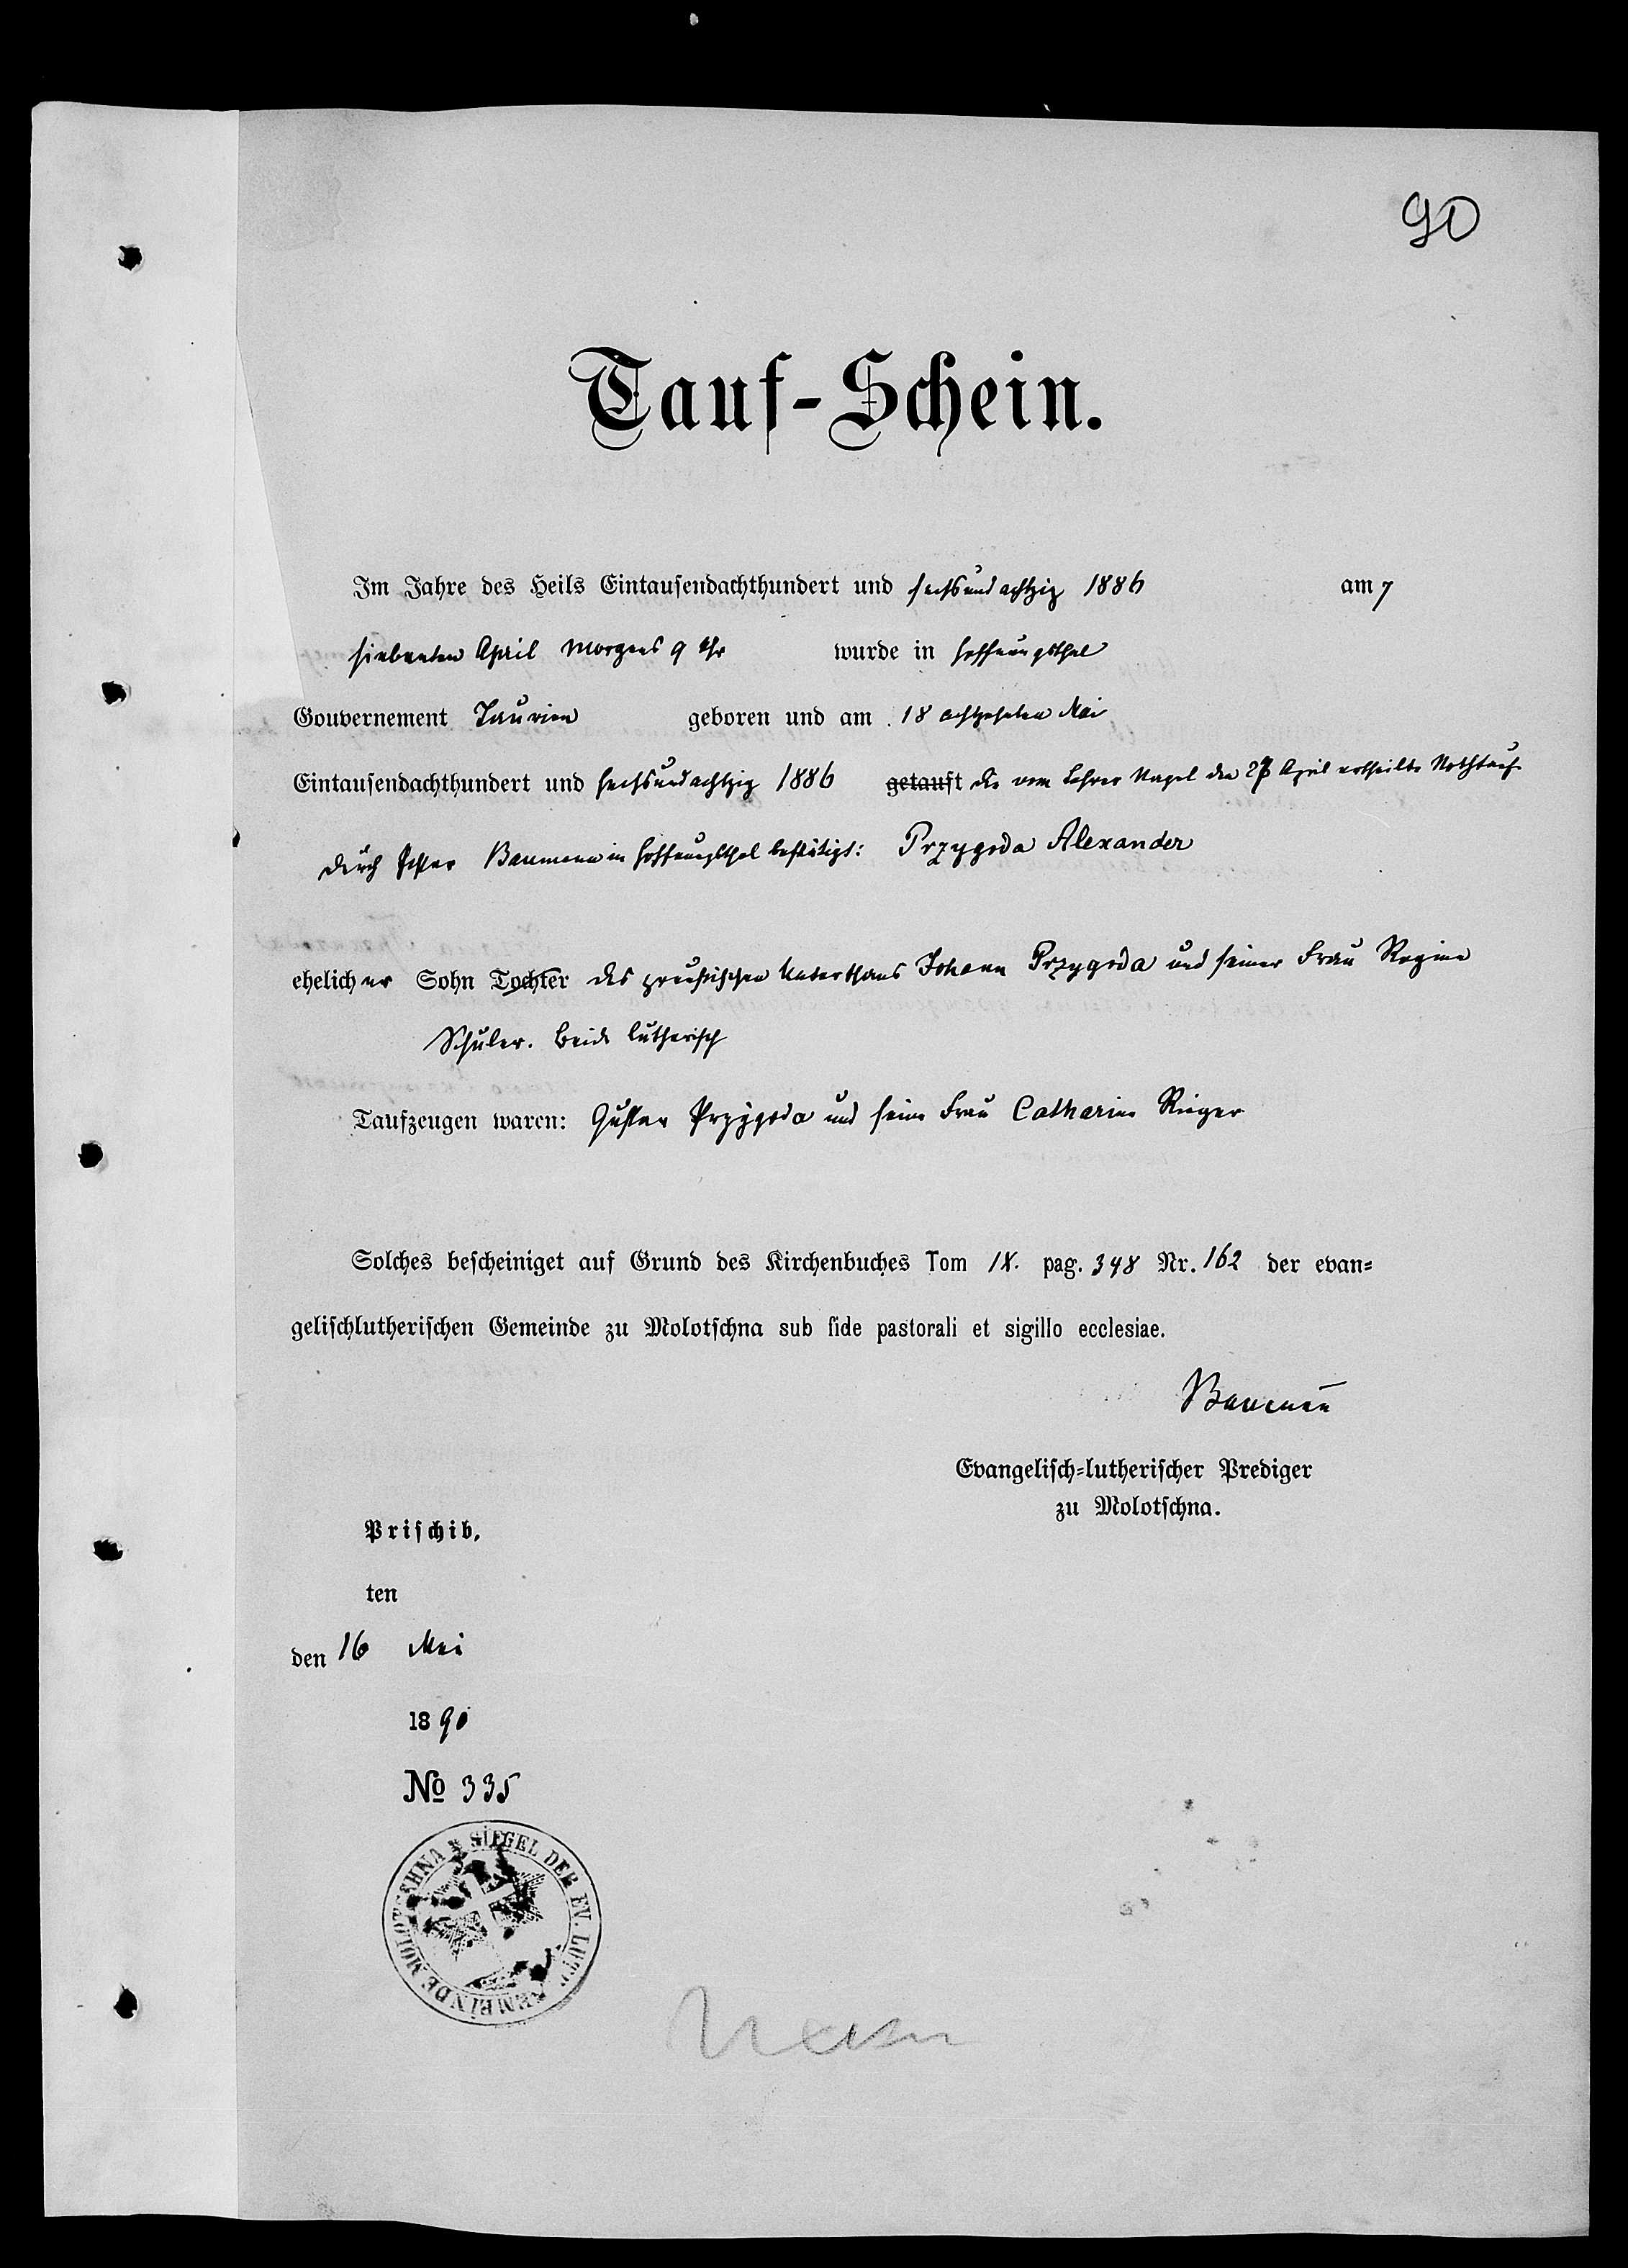 90
Tauf-Schein.
Im Jahre des Heils Eintausendachthundert und sechsundachtzig 1886 am 7
siebenten April Morgens 9 Uhr wurde in Hoffnungsthal
Gouvernement Taurien geboren und am 18 achtzehnten Mai
Eintausendachthundert und sechsundachtzig 1886 getauft die vom Lehrer Nagel den 27 April ertheilte Nothtaufe
durch Pastor Baumann in Hoffnungsthal bestätigt: Przygoda Alexander
ehelicher Sohn Tochter des preußischen Unterthans Johann Przygoda und seiner Frau Regine
Schuler. Beide lutherisch
Taufzeugen waren: Gustav Przygoda und seine Frau Catharine Rieger
Solches bescheiniget auf Grund des Kirchenbuches Tom IX. pag. 348 Nr. 162 der evan=
gelischlutherischen Gemeinde zu Molotschna sub fide pastorali et sigillo ecclesiae.
Baumann
Evangelisch=lutherischer Prediger
zu Molotschna.
Prischib,
ten
den 16 Mai
1890
No 335
SIEGEL DER EV. LUTH. GEMEINDE MOLOTSCHNA